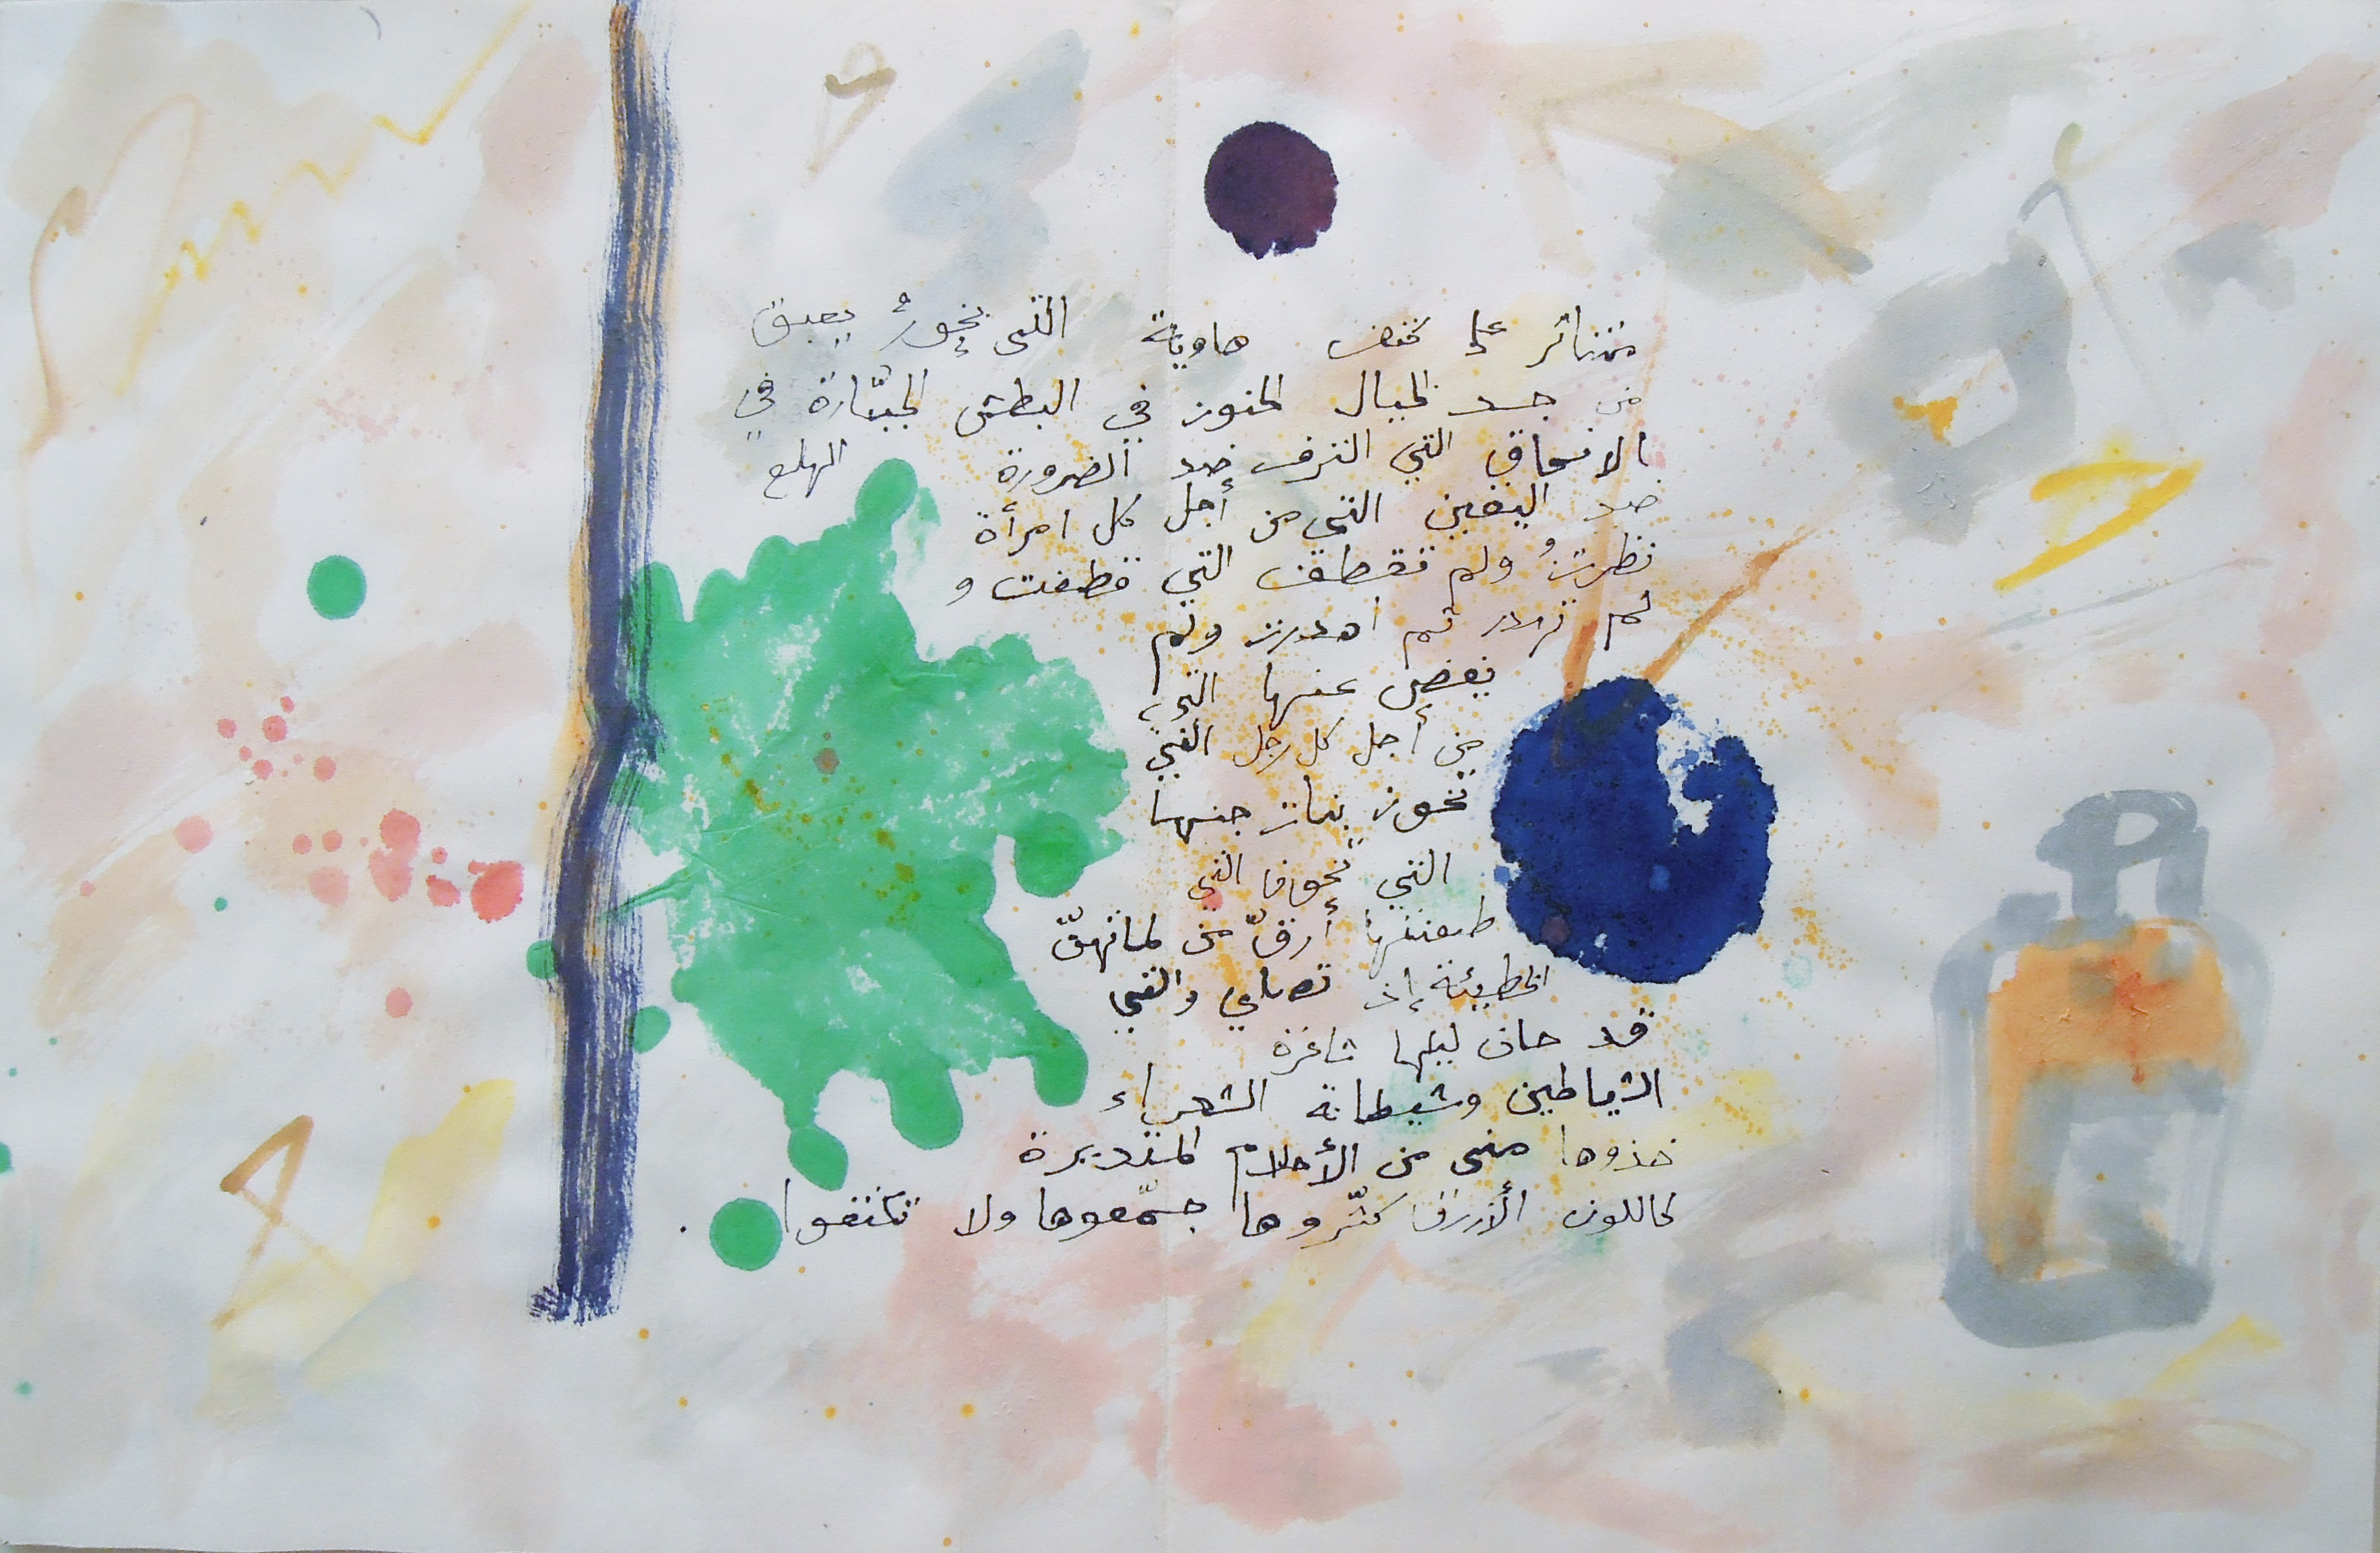 تتناثر على كتف هاوية التي تخورُ بعبق
من جسد الخيال الخنون في البطش الجبّارة في
الانمحاق التي النزف ضد الضرورة الهلع
ضد اليقين التي من أجل كل امرأة
نظرتُ ولم تقطف التي قطفت و
لم ثم اهدرت ولم
يغض عنها التي
من أجل كل رجل التي
تخون بنات جنسها
التي تخوف التي
طعنتها أرقّ من
الخطيئة إذ تصلي والتي
قد حان ليلها شاغرة
الشياطين وشيطانة الشعراء
خذوها مني من الأحلام المستديرة
كاللون الأزرق كثّروها جمّعوها ولا تكتفوا .